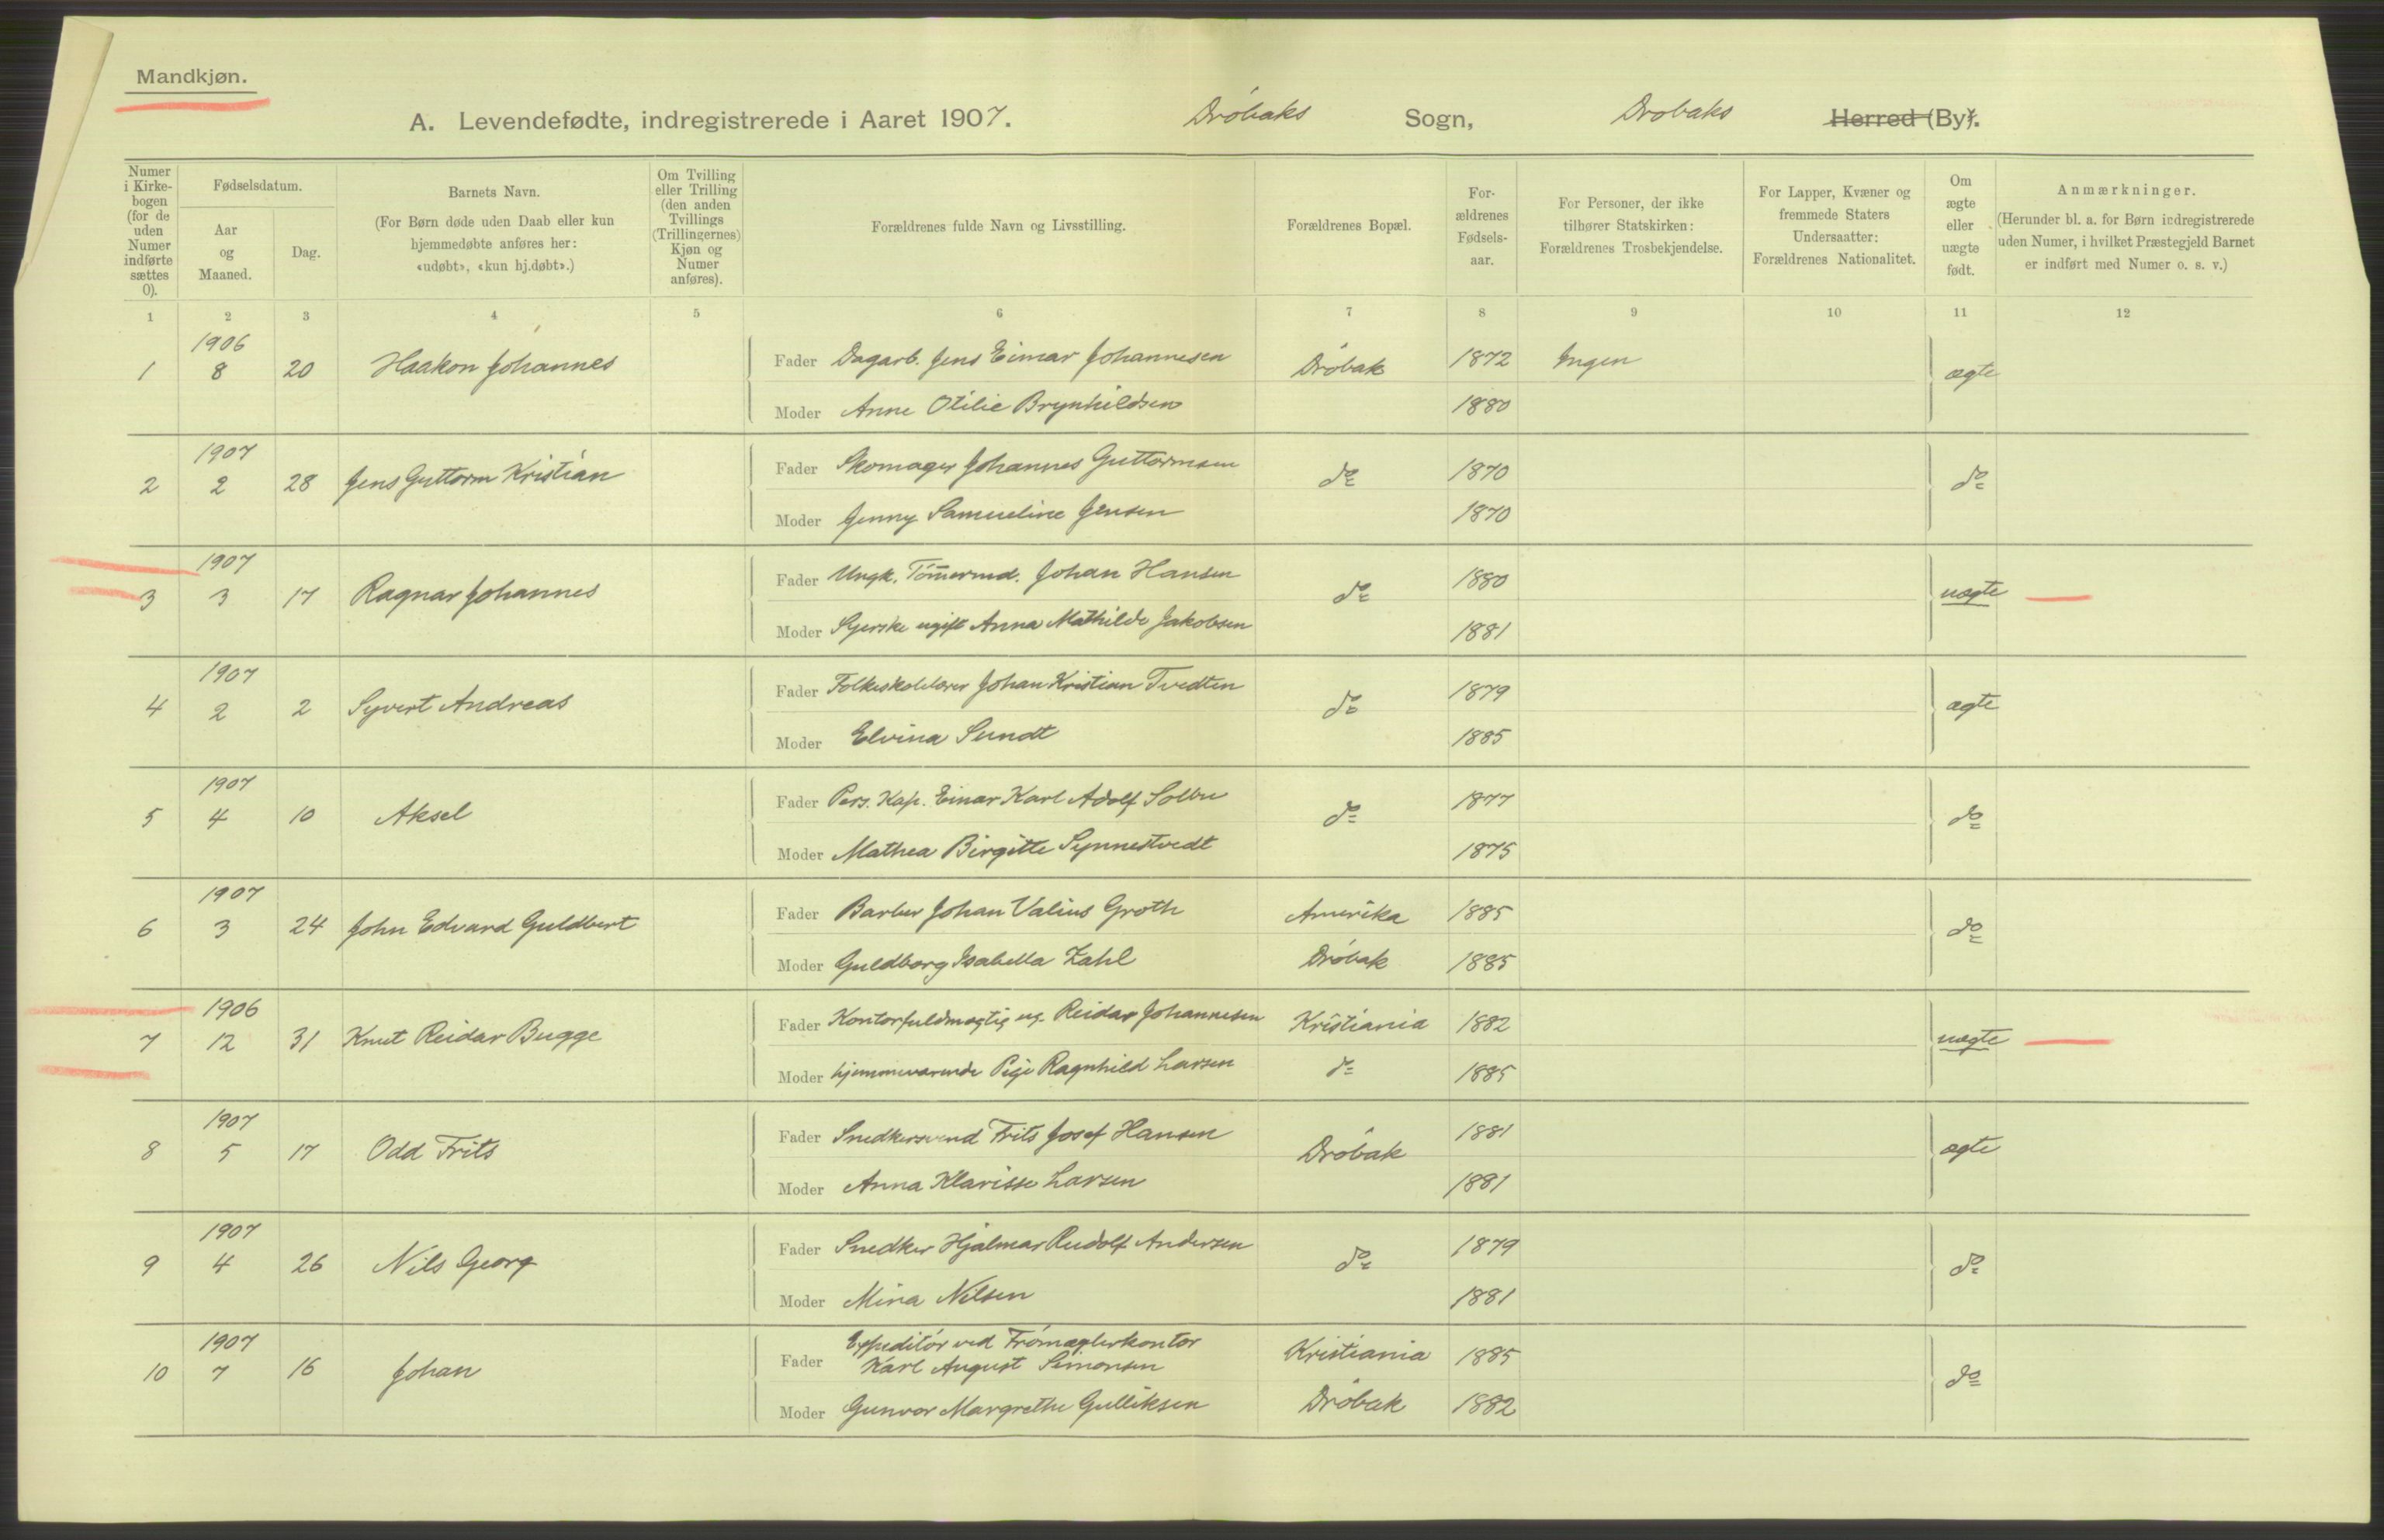 Mandkjøn.
A. Levendefødte, indregistrerede i Aaret 1907. Drøbaks Sogn, Drøbaks Herred (By).
Numer i Kirkebogen (for de uden Numer indførte sættes 0).
Fødselsdatum.
Aar og Maaned.
Dag.
Barnets Navn.
(For Børn døde uden Daab eller kun hjemmedøbte anføres her: «udøbt», «kun hj.døbt».)
Om Tvilling eller Trilling (den anden Tvillings (Trillingernes) Kjøn og Numer anføres).
Forældrenes fulde Navn og Livsstilling.
Forældrenes Bopæl.
For-ældrenes Fødsels-aar.
For Personer, der ikke tilhører Statskirken: Forældrenes Trosbekjendelse.
For Lapper, Kvæner og fremmede Staters Undersaatter: Forældrenes Nationalitet.
Om ægte eller uægte født.
Anmærkninger.
(Herunder bl. a. for Børn indregistrerede uden Numer, i hvilket Præstegjeld Barnet er indført med Numer o. s. v.)
1 2 3 4 5 6 7 8 9 10 11 12
1906
1 8 20 Haakon Johannes Fader Dagarb. Jens Einar Johannesen Drøbak 1872 Ingen ægte
Moder Anne Otilie Brynhildsen 1880
1907
2 2 28 Jens Guttorm Kristian Fader Skomager Johannes Guttormsen do 1870 do
Moder Jenny Samueline Jensen 1870
1907
3 3 17 Ragnar Johannes Fader Ungk. Tømermd. Johan Hansen do 1880 uægte
Moder Syerske ugift Anna Mathilde Jakobsen 1881
1907
4 2 2 Syvert Andreas Fader Folkeskolelærer Johan Kristian Tvedten do 1879 ægte
Moder Elvina Sundt 1885
1907
5 4 10 Aksel Fader Pers. Kap. Einar Karl Adolf Solbu do 1877 do
Moder Mathea Birgitte Synnestvedt 1875
1907
6 3 24 John Edvard Guldbert Fader Barber Johan Valius Groth Amerika 1885 do
Moder Guldborg Isabella Zahl Drøbak 1885
1906
7 12 31 Knut Reidar Bugge Fader Kontorfuldmægtig ug. Reidar Johannesen Kristiania 1882 uægte
Moder hjemmeværende Pige Ragnhild Larsen do 1885
1907
8 5 17 Odd Frits Fader Snedkersvend Frits Josef Hansen Drøbak 1881 ægte
Moder Anna Klarisse Larsen 1881
1907
9 4 26 Nils Georg Fader Snedker Hjalmar Rudolf Andersen do 1879 do
Moder Mina Nilsen 1881
1907
10 7 16 Johan Fader Expeditør ved Træmæglerkontor
Karl August Simonsen Kristiania 1885 do
Moder Gunvor Margrethe Gulliksen Drøbak 1882